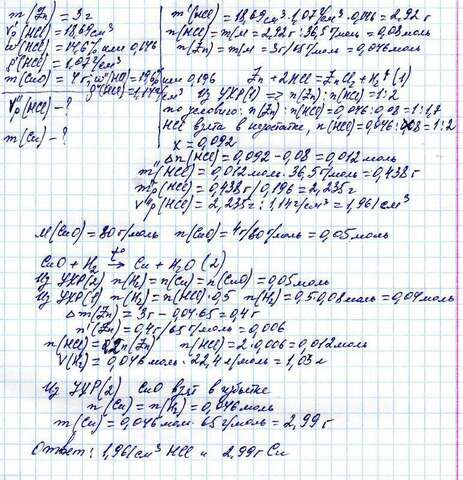 m(Zn) = 3г
Vр'(HCl) = 18,69см³
w'(HCl) = 14,6% или 0,146
ρ'(HCl) = 1,07г/см³
m(CuO) = 4г; w''(HCl) = 19,6% или 0,196
ρ''(HCl) = 1,14г/см³
Vр''(HCl) - ?
m(Cu) - ?
m'(HCl) = 18,69см³·1,07г/см³·0,146 = 2,92г
n(HCl) = m/M = 2,92г : 36,5г/моль = 0,08моль
n(Zn) = m/M = 3г/65г/моль = 0,046моль
Zn + 2HCl = ZnCl₂ + H₂↑ (1)
Из УХР(1) => n(Zn) : n(HCl) = 1:2
по условию: n(Zn) : n(HCl) = 0,046 : 0,08 = 1:1,7
HCl взята в недостатке, n(HCl) = 0,046 : = 1:2
x = 0,092
Δn(HCl) = 0,092 - 0,08 = 0,012моль
m''(HCl) = 0,012моль · 36,5г/моль = 0,438г
mр''(HCl) = 0,438г / 0,196 = 2,235г
Vр''(HCl) = 2,235г : 1,14г/см³ = 1,961см³
M(CuO) = 80г/моль n(CuO) = 4г/80г/моль = 0,05моль
CuO + H₂ t°→ Cu + H₂O (2)
Из УХР(2) n(H₂) = n(Cu) = n(CuO) = 0,05моль
Из УХР(1) n(H₂) = n(HCl)·0,5 n(H₂) = 0,5·0,08моль = 0,04моль
Δm(Zn) = 3г - 0,04·65г = 0,4г
n'(Zn) = 0,4г/65г/моль = 0,006
n(HCl) = 2n(Zn) n(HCl) = 2·0,006 = 0,012моль
V(H₂) = 0,046моль · 22,4л/моль = 1,03л
Из УХР(2) CuO взят в избытке
n(Cu) = n(H₂) = 0,046моль
m(Cu) = 0,046моль · 65г/моль = 2,99г
Ответ: 1,961см³ HCl и 2,99г Cu